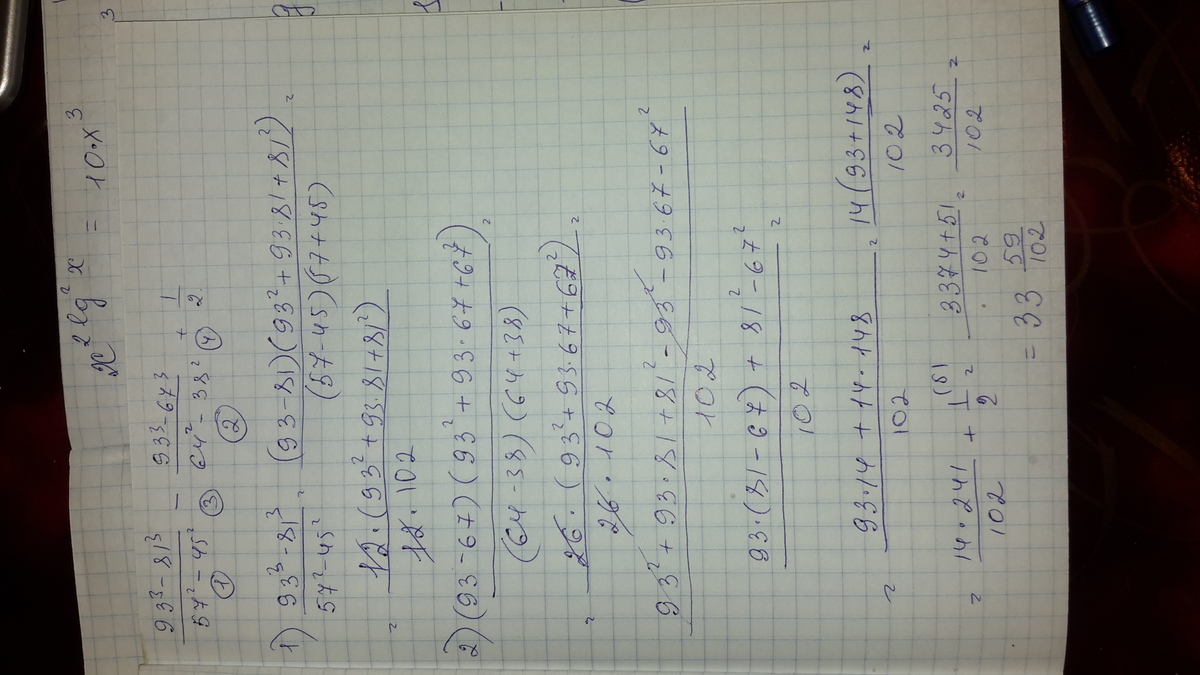 x² lg² x = 10·x³
(93³ − 81³)/(57² − 45²) − (93³ − 67³)/(64² − 38²) + 1/2
① ③ ② ④
1) (93³ − 81³)/(57² − 45²) = ((93 − 81)(93² + 93·81 + 81²))/((57 − 45)(57 + 45)) =
= (12·(93² + 93·81 + 81²))/(12·102)
2) ((93 − 67)(93² + 93·67 + 67²))/((64 − 38)(64 + 38)) =
= (26·(93² + 93·67 + 67²))/(26·102) =
(93² + 93·81 + 81² − 93² − 93·67 − 67²)/102
(93·(81 − 67) + 81² − 67²)/102 =
= (93·14 + 14·148)/102 = (14(93 + 148))/102 =
= (14·241)/102 + 1/2 (51 = (3374 + 51)/102 = 3425/102 =
= 33 59/102